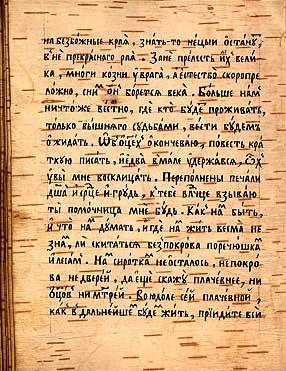 на безбожные края, знать-то нецыи остану,
в не прекраснаго рая. Зане прелесть их вели-
ка, многи козни у врага, а естество скоропре-
ложно, сни он борется века. Больше нам
ничто же вестно, где кто буде проживать,
только вышняго судьбами, вести будем
ожидать. окончеваю, повесть кра
ткую писать, и едва вмале удержався, Ох
увы мне восклицать. Переполнены печали
дша и срце и грудь, к тебе влчце взываю
ты помочница мне будь. Как на быть,
и что на думать, и где на жить весма не
зна, ли скитаться без покрова по речюшка
и лесам. На сиротка не осталось, ни покро
ва ни дверей, да еще скажу плачевнее, ни
оцов ни мтрей. Во юдоле сей плачевной
как в дальнейше буде жить, приидите вси